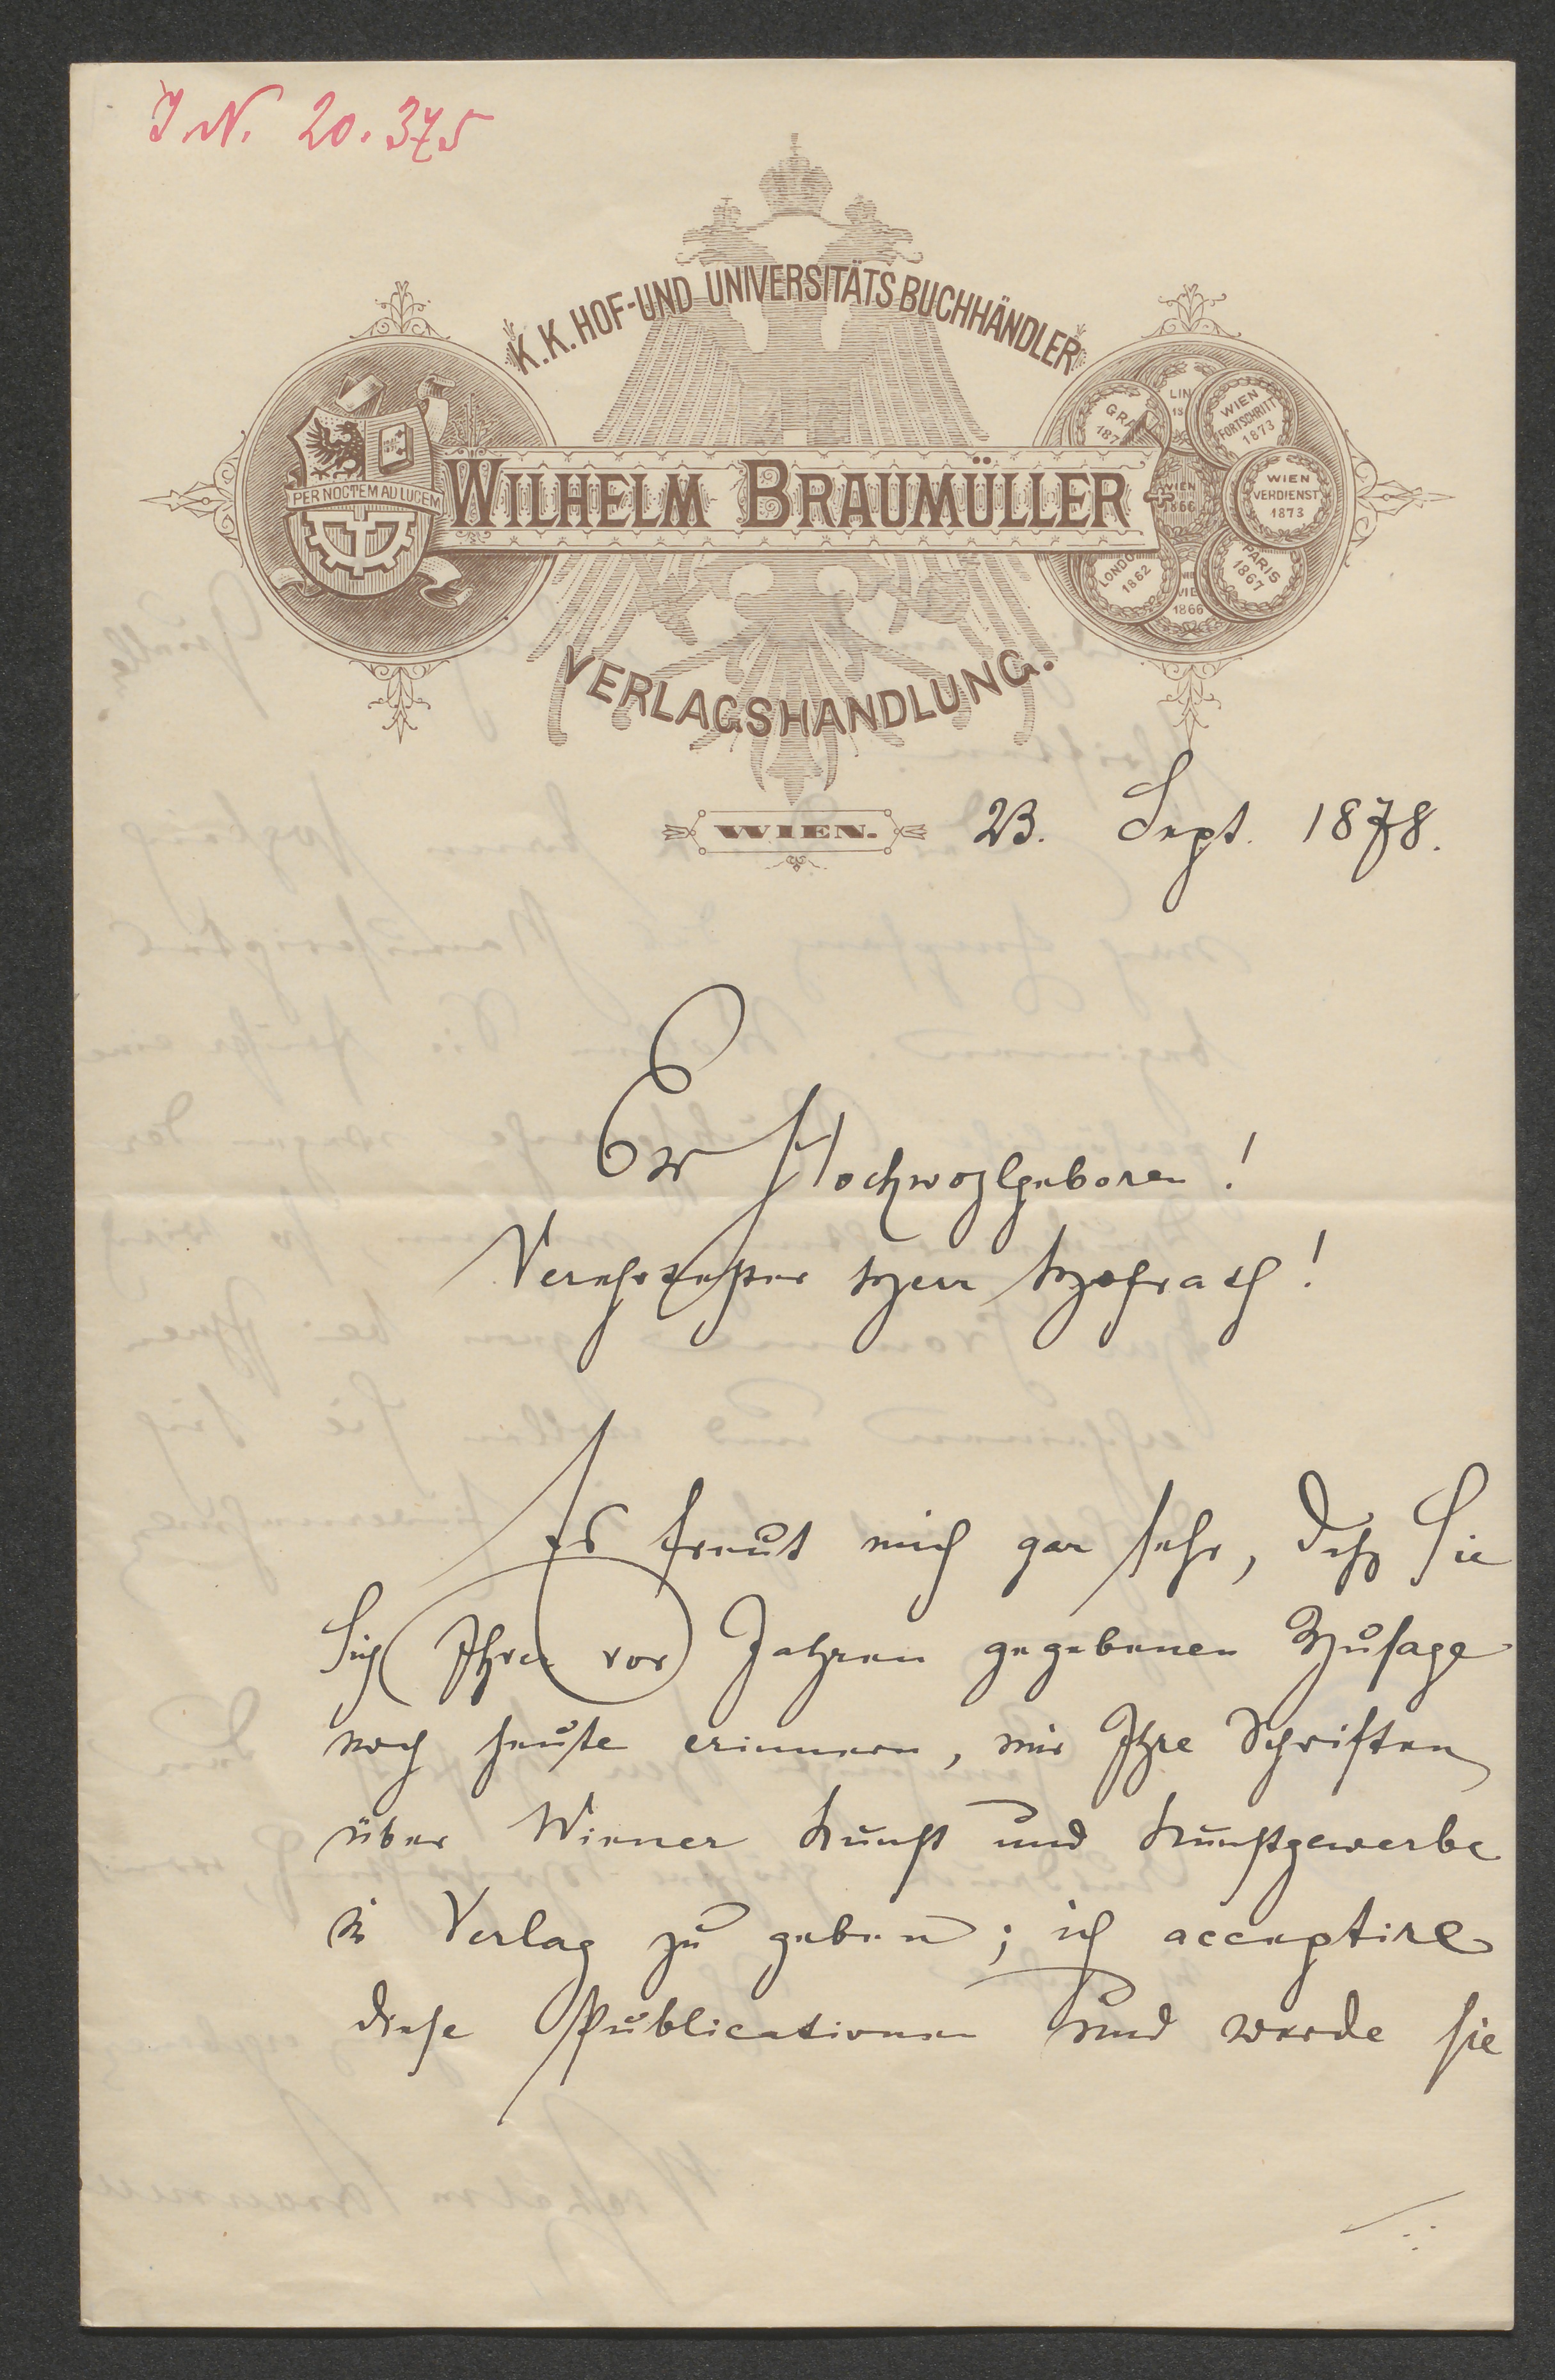 J.N. 20.375
K.K. HOF-UND UNIVERSITÄTS BUCHHÄNDLER
PER NOCTEM AD LUCEM
WILHELM BRAUMÜLLER
GRA
187
LIN
18
WIEN
FORTSCHRITT
1873
WIEN
1866
WIEN
VERDIENST
1873
LONDO
1862
WIE
1866
PARIS
1867
VERLAGSHANDLUNG.
WIEN. 23. Sept. 1878.
Ew Hochwohlgeboren!
Verehrtester Herr Hofrath!
Es freut mich gar sehr, daß Sie
Sich Ihrer vor Jahren gegebenen Zusage
noch heute erinnern, mir Ihre Schriften
über Wiener Kunst und Kunstgewerbe
in Verlag zu geben; ich acceptire
diese Publicationen und werde sie